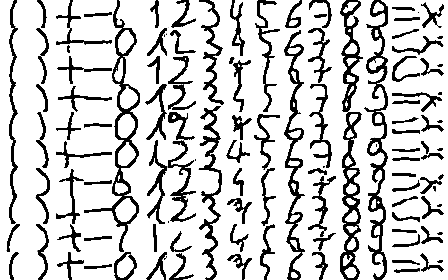 ( ) + - 6 1 2 3 4 5 6 7 8 9 = x
( ) + - 0 1 2 3 4 5 6 7 8 9 = x
( ) + - 0 1 2 3 4 5 6 7 8 9 = x
( ) + - 0 1 2 3 4 5 6 7 8 9 = x
( ) + - 0 1 2 3 4 5 6 7 8 9 = x
( ) + - 0 1 2 3 4 5 6 7 8 9 = x
( ) + - 0 1 2 3 4 5 6 7 8 9 = x
( ) + - 0 1 2 3 4 5 6 7 8 9 = x
( ) + - 1 2 3 4 5 6 7 8 9 = x
( ) + - 0 1 2 3 4 5 6 7 8 9 = x